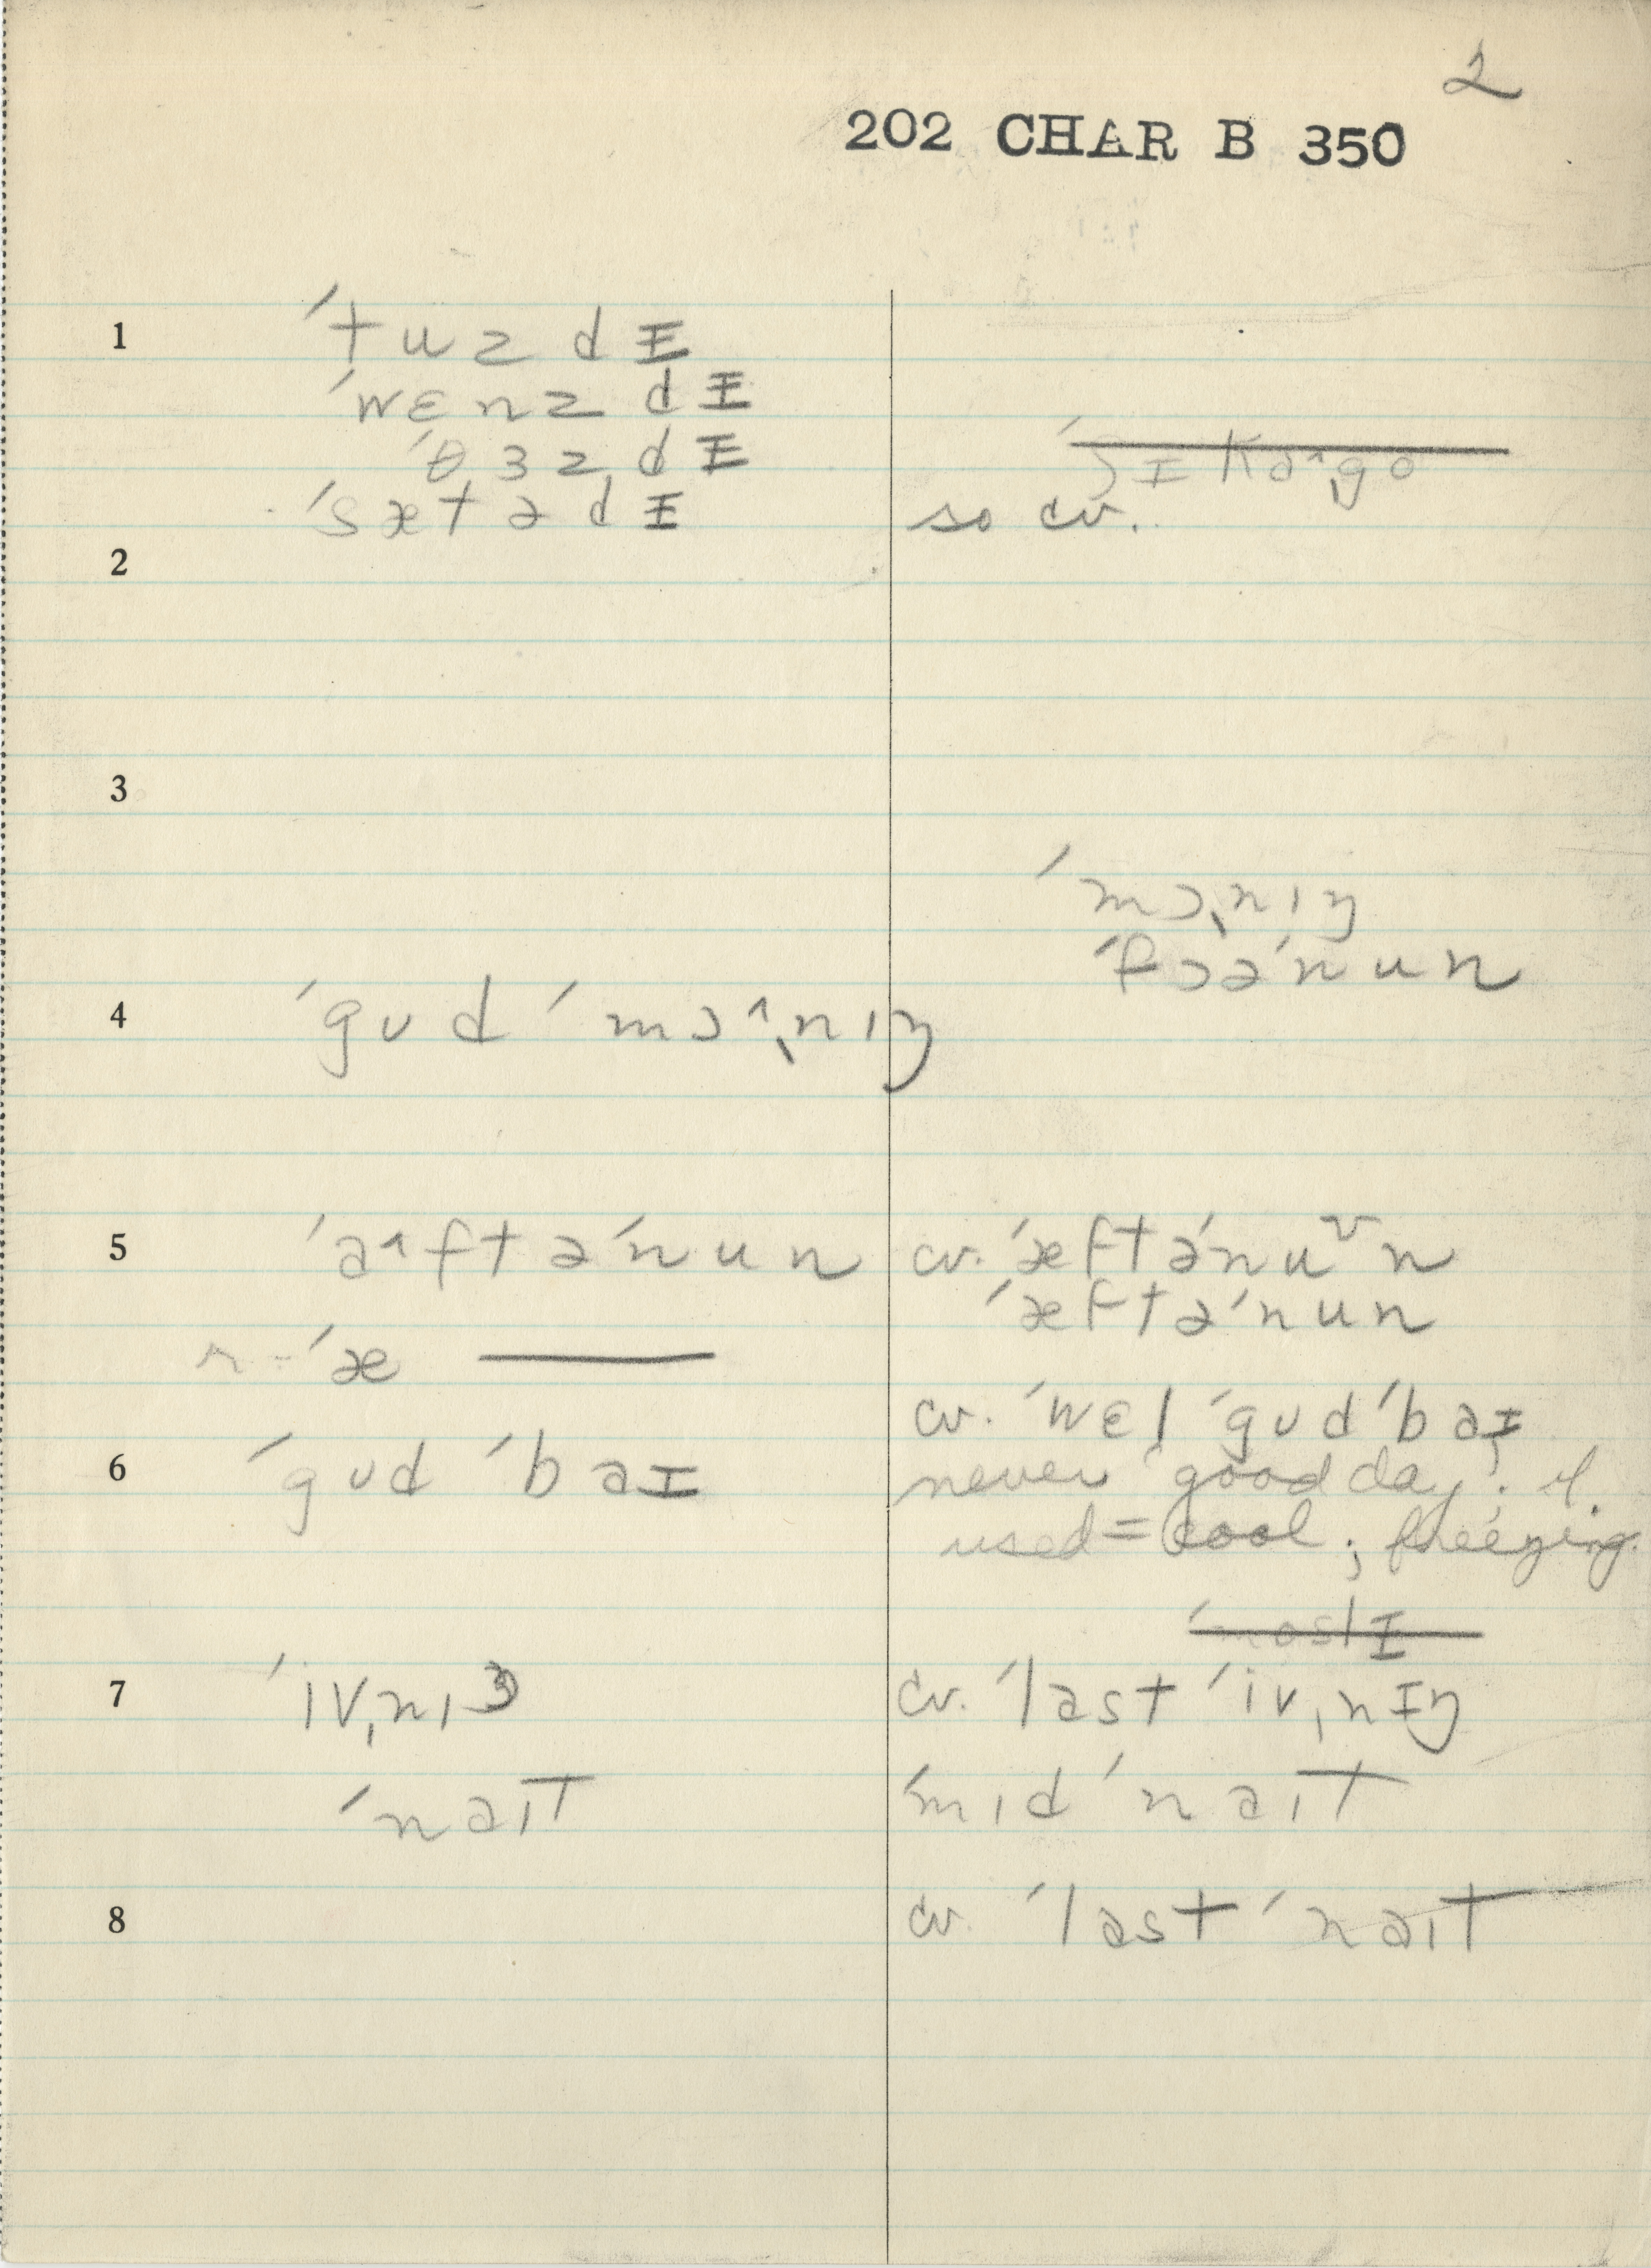 2
202 CHAR B 350
1 ˈtuzdɪ
ˈwɛnzdɪ
ˈθɜzdɪ
ˈsætədɪ
ˈʃɪkɑ˄gə
so cv.
2
3
ˈmɔnɪŋ
ˈfɔəˈnun
4 ˈgʊd ˈmɔ˄nɪŋ
5 ˈa˄ftəˈnun cv. ˈæftəˈnu˅n
ˈæftəˈnun
r - ˈæ ———
cv. ˈwɛl ˈgʊdˈbaɪ
6 ˈgʊd ˈbaɪ never 'good day'; if
used = cool; freezing.
7 ˈivnɪŋ cv. ˈlast ˈivnɪŋ
ˈnaɪt ˈmɪdˈnaɪt
8 cv. ˈlast ˈnaɪt